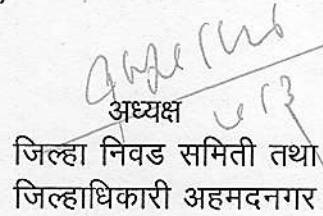 अध्यक्ष
जिल्हा निवड समिती तथा
जिल्हाधिकारी अहमदनगर